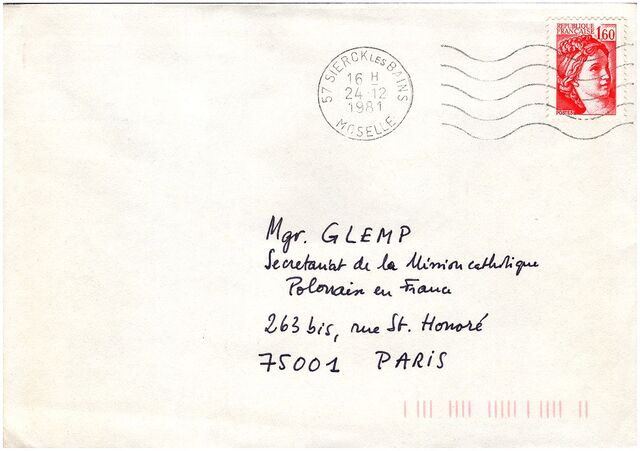 REPUBLIQUE
FRANCAISE
1,60
POSTES
57 SIERCK LES BAINS
16 H
24-12
1981
MOSELLE
Mgr. GLEMP
Secretariat de la Mission catholique
Polonaise en France
263 bis, rue St. Honoré
75001 PARIS